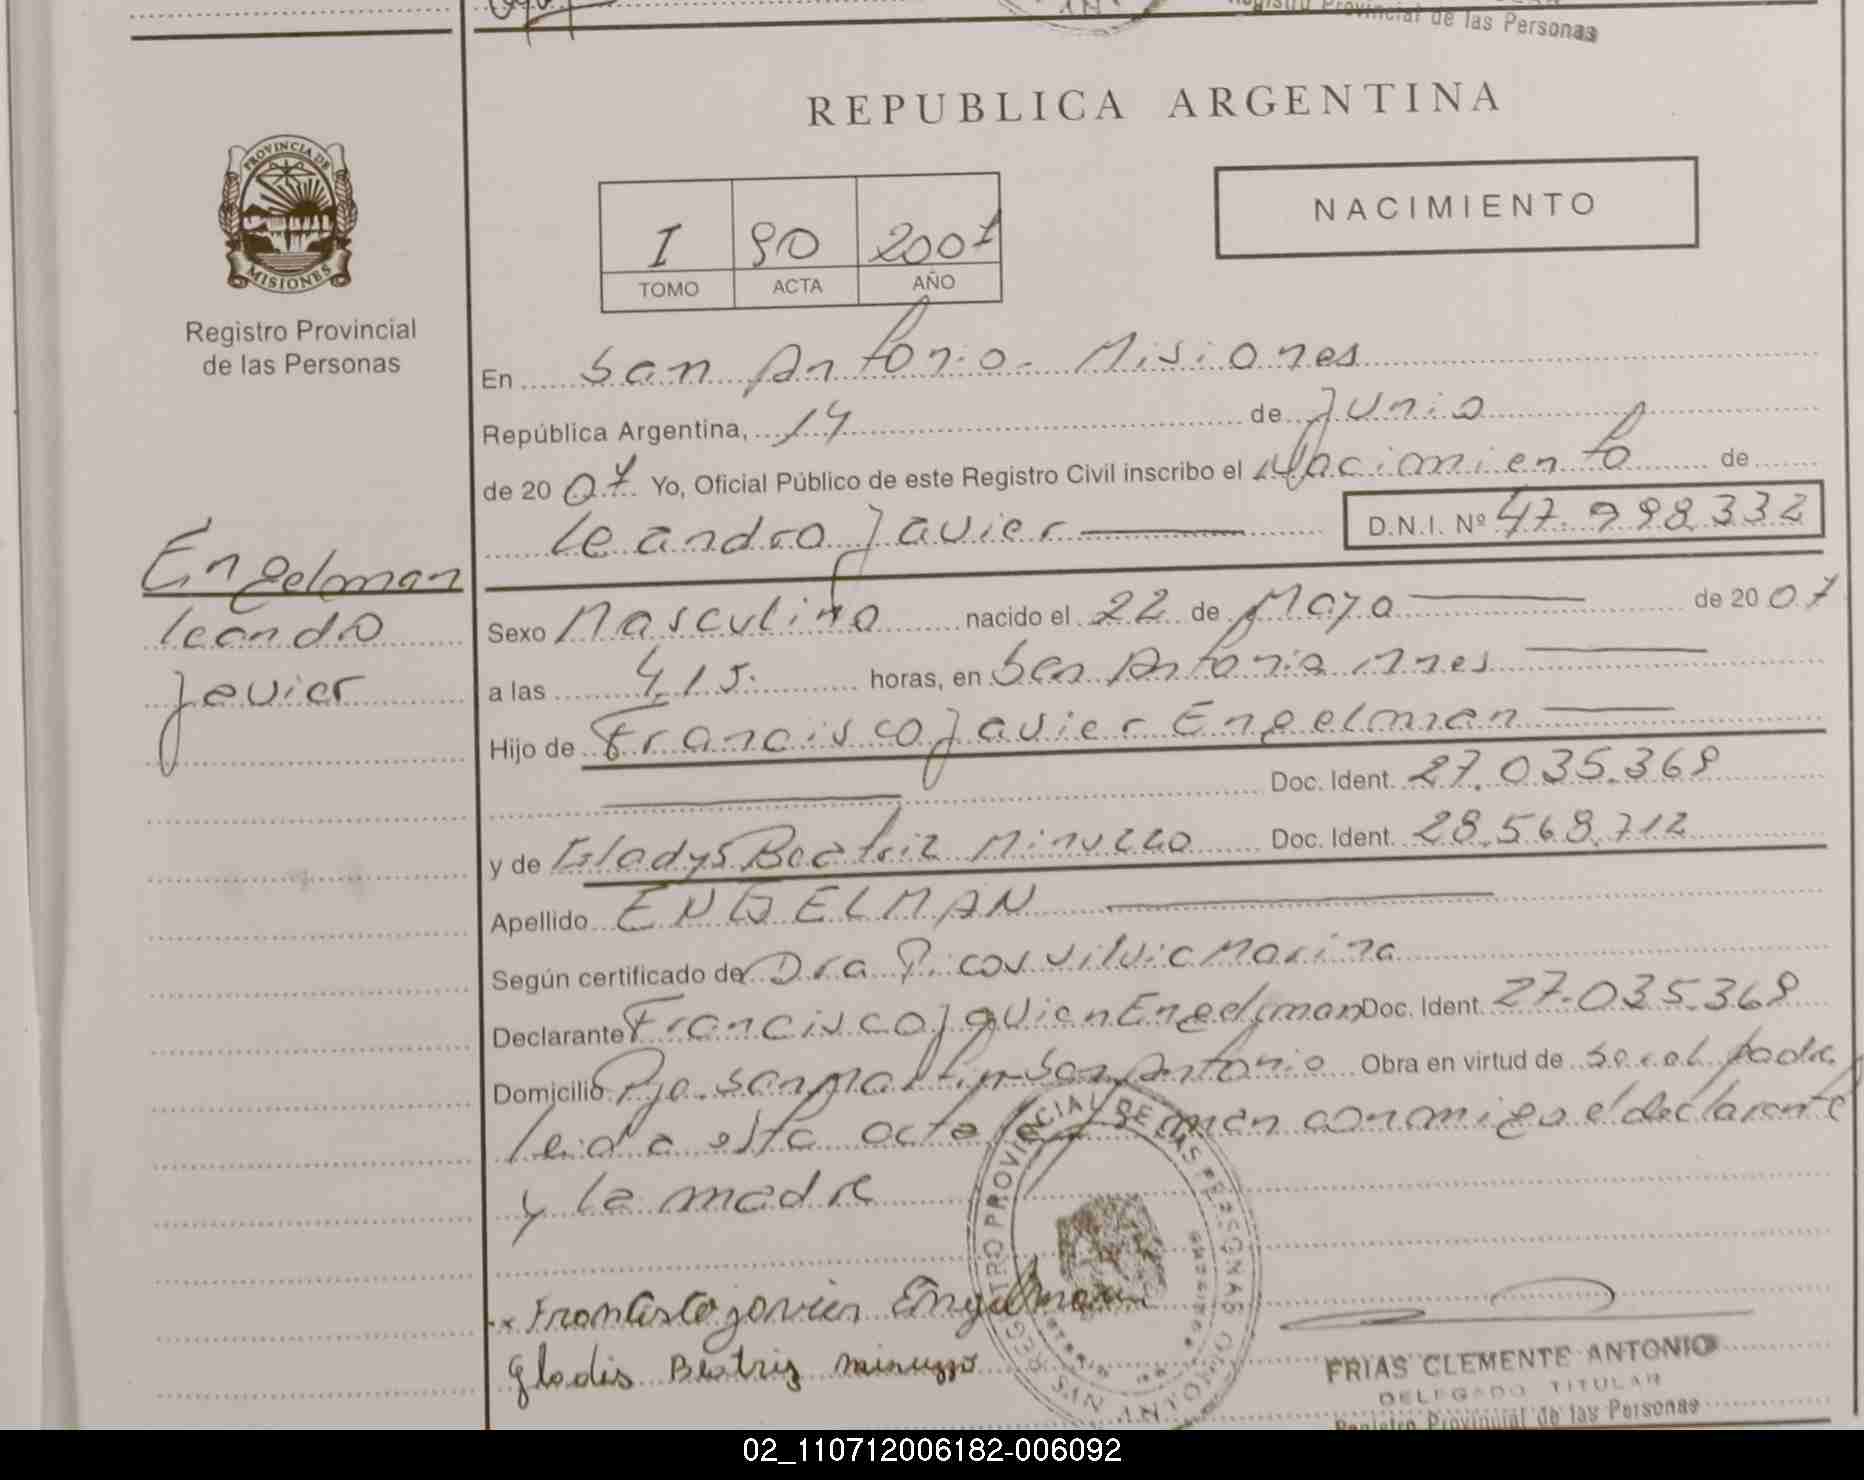 Registro Provincial de las Personas
REPUBLICA ARGENTINA
PROVINCIA DE
MISIONES
Registro Provincial
de las Personas
I 90 2007
TOMO ACTA AÑO
NACIMIENTO
En San Antonio - Misiones
República Argentina, 14 de Junio
de 20 07 Yo, Oficial Público de este Registro Civil inscribo el Nacimiento de
Leandro Javier D.N.I. Nº 47.998.332
Engelman
Leandro
Javier
Sexo Masculino nacido el 22 de Mayo de 20 07
a las 4,15 horas, en San Antonio Mnes
Hijo de Francisco Javier Engelman
Doc. Ident. 27.035.369
y de Gladys Beatriz Minuzzo Doc. Ident. 28.568.712
Apellido ENGELMAN
Según certificado de Dra Marina
Declarante Francisco Javier Engelman Doc. Ident. 27.035.369
Domicilio Pje. San Martin - San Antonio Obra en virtud de Ser el padre
leida esta acta la firman conmigo el declarante
y la madre
REGISTRO PROVINCIAL DE LAS PERSONAS
SAN ANTONIO
x Francisco javier Engelman
gladis Beatriz minuzzo
FRIAS CLEMENTE ANTONIO
DELEGADO TITULAR
Registro Provincial de las Personas
02_110712006182-006092